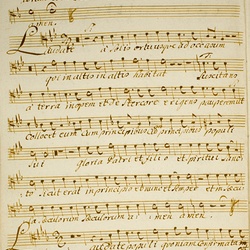 Amen.
Laudate a solis ortu usque ad occasum
qui in altis in altis habitat Suscitans
a terra inopem et de stercore erigens pauperem ut
Collocet eum cum principibus cum principibus populi
sui gloria Patri et filio et spiritui sanc
to sicut erat in principio et nunc et semper et in saecu
la saeculorum saeculorum amen amen.
Laudate populi quoniam confirmata